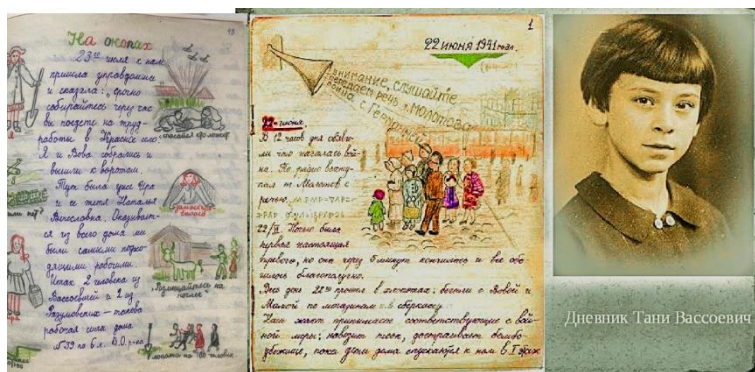 На окопах
23го июля к нам
пришла управдомша
и сказала: „срочно
собирайтесь через час
вы поедете на труд-
работы в Красное село.
Я и Вова собрались и
вышли к воротам.
Тут была уже Ира
и её тетя Наталья
Вячеславовна.
из всего дома мы
были самыми подхо-
дящими рабочими.
Итак 2 человека из
Вассоевич и 2 из
Разумовских - такова
рабочая сила дома
№39 по 6 л. В.О.
1
22 июня 1941 года.
Внимание, слушайте
передаем речь т. Молотова
война с Германией
22 июня.
В 12 часов дня объяви-
ли что началась вой-
на. По радио высту-
пал т. Молотов с
речью.
22/VI. Ночью была
первая настоящая
тревога, но она через 5 минут кончилась и все обо-
шлось благополучно.
Весь день 22го прошел в хлопотах: бегали с Вовой и
Милкой по магазинам
Наш жакт принимает соответствующие с вой-
ной меры: навозит песок, достраивает бомбо-
убежище, пока дети дома спускаются к нам в I этаж
Дневник Тани Вассоевич